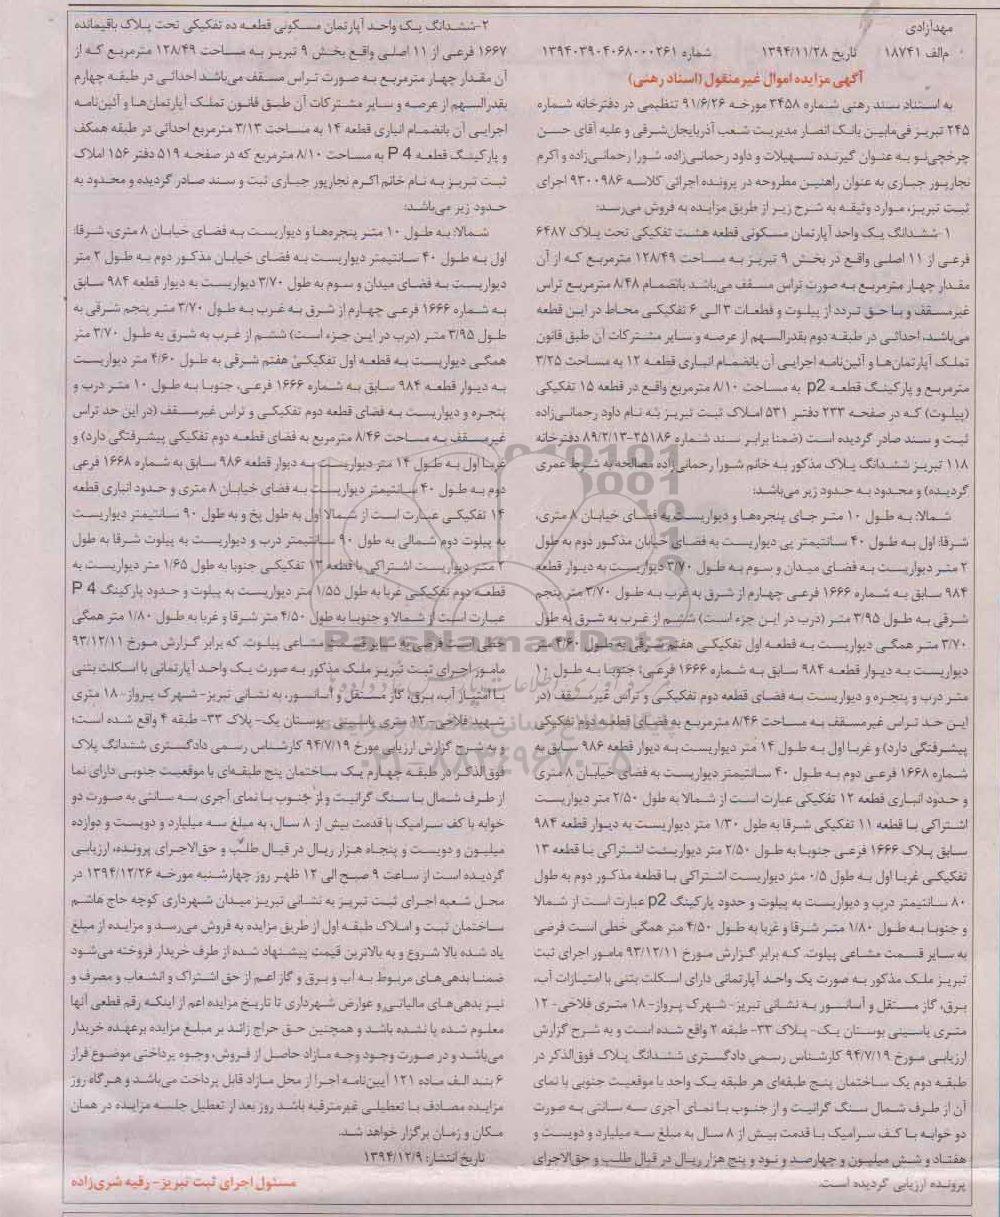 مهدآزادی
م‌الف ۱۸۷۴۱ تاریخ ۱۳۹۴/۱۱/۲۸ شماره ۱۳۹۴۰۳۹۰۴۰۶۸۰۰۰۲۶۱
آگهی مزایده اموال غیرمنقول (اسناد رهنی)
به استناد سند رهنی شماره ۳۴۵۸ مورخه ۹۱/۶/۲۶ تنظیمی در دفترخانه شماره
۲۴۵ تبریز فی‌مابین بانک انصار مدیریت شعب آذربایجان‌شرقی و علیه آقای حسن
چرخچی‌نو به عنوان گیرنده تسهیلات و داود رحمانی‌زاده، شورا رحمانی‌زاده و اکرم
نجارپور جباری به عنوان راهنین مطروحه در پرونده اجرائی کلاسه ۹۳۰۰۹۸۶ اجرای
ثبت تبریز، موارد وثیقه به شرح زیر از طریق مزایده به فروش می‌رسد:
۱-ششدانگ یک واحد آپارتمان مسکونی قطعه هشت تفکیکی تحت پلاک ۶۴۸۷
فرعی از ۱۱ اصلی واقع در بخش ۹ تبریز به مساحت ۱۲۸/۴۹ مترمربع که از آن
مقدار چهار مترمربع به صورت تراس مسقف می‌باشد بانضمام ۸/۴۸ مترمربع تراس
غیرمسقف و با حق تردد از پیلوت و قطعات ۳ الی ۶ تفکیکی محاط در این قطعه
می‌باشد، احداثی در طبقه دوم بقدرالسهم از عرصه و سایر مشترکات آن طبق قانون
تملک آپارتمان‌ها و آئین‌نامه اجرایی آن بانضمام انباری قطعه ۱۲ به مساحت ۳/۲۵
مترمربع و پارکینگ قطعه p2 به مساحت ۸/۱۰ مترمربع واقع در قطعه ۱۵ تفکیکی
(پیلوت) که در صفحه ۲۳۳ دفتر ۵۳۱ املاک ثبت تبریز به نام داود رحمانی‌زاده
ثبت و سند صادر گردیده است (ضمنا برابر سند شماره ۲۵۱۸۶-۸۹/۲/۱۳ دفترخانه
۱۱۸ تبریز ششدانگ پلاک مذکور به خانم شورا رحمانی‌زاده مصالحه به شرط عمری
گردیده) و محدود به حدود زیر می‌باشد:
شمالا: به طول ۱۰ متر جای پنجره‌ها و دیواریست به فضای خیابان ۸ متری،
شرقا: اول به طول ۴۰ سانتیمتر پی دیواریست به فضای خیابان مذکور دوم به طول
۲ متر دیواریست به فضای میدان و سوم به طول ۳/۷۰ دیواریست به دیوار قطعه
۹۸۴ سابق به شماره ۱۶۶۶ فرعی چهارم از شرق به غرب به طول ۳/۷۰ متر پنجم
شرقی به طول ۳/۹۵ متر (درب در این جزء است) ششم از غرب به شرق به طول
۳/۷۰ متر همگی دیواریست به قطعه اول تفکیکی هفتم شرقی به طول ۴/۶۰ متر
دیواریست به دیوار قطعه ۹۸۴ سابق به شماره ۱۶۶۶ فرعی، جنوبا به طول ۱۰
متر درب و پنجره و دیواریست به فضای قطعه دوم تفکیکی و تراس غیرمسقف (در
این حد تراس غیرمسقف به مساحت ۸/۴۶ مترمربع به فضای قطعه دوم تفکیکی
پیشرفتگی دارد) و غربا اول به طول ۱۴ متر دیواریست به دیوار قطعه ۹۸۶ سابق به
شماره ۱۶۶۸ فرعی دوم به طول ۴۰ سانتیمتر دیواریست به فضای خیابان ۸ متری
و حدود انباری قطعه ۱۲ تفکیکی عبارت است از شمالا به طول ۲/۵۰ متر دیواریست
اشتراکی با قطعه ۱۱ تفکیکی شرقا به طول ۱/۳۰ متر دیواریست به دیوار قطعه ۹۸۴
سابق پلاک ۱۶۶۶ فرعی جنوبا به طول ۲/۵۰ متر دیواریست اشتراکی با قطعه ۱۳
تفکیکی غربا اول به طول ۰/۵ متر دیواریست اشتراکی با قطعه مذکور دوم به طول
۸۰ سانتیمتر درب و دیواریست به پیلوت و حدود پارکینگ p2 عبارت است از شمالا
و جنوبا به طول ۱/۸۰ متر شرقا و غربا به طول ۴/۵۰ متر همگی خطی است فرضی
به سایر قسمت مشاعی پیلوت. که برابر گزارش مورخ ۹۳/۱۲/۱۱ مامور اجرای ثبت
تبریز ملک مذکور به صورت یک واحد آپارتمانی دارای اسکلت بتنی با امتیازات آب،
برق، گاز مستقل و آسانسور به نشانی تبریز- شهرک پرواز- ۱۸ متری فلاحی- ۱۲
متری یاسینی بوستان یک- پلاک ۳۳- طبقه ۲ واقع شده است و به شرح گزارش
ارزیابی مورخ ۹۴/۷/۱۹ کارشناس رسمی دادگستری ششدانگ پلاک فوق‌الذکر در
طبقه دوم یک ساختمان پنج طبقه‌ای هر طبقه یک واحد با موقعیت جنوبی با نمای
آن از طرف شمال سنگ گرانیت و از جنوب با نمای آجری سه سانتی به صورت
دو خوابه با کف سرامیک با قدمت بیش از ۸ سال به مبلغ سه میلیارد و دویست و
هفتاد و شش میلیون و چهارصد و نود و پنج هزار ریال در قبال طلب و حق‌الاجرای
پرونده ارزیابی گردیده است.
۲-ششدانگ یک واحد آپارتمان مسکونی قطعه ده تفکیکی تحت پلاک باقیمانده
۱۶۶۷ فرعی از ۱۱ اصلی واقع بخش ۹ تبریز به مساحت ۱۲۸/۴۹ مترمربع که از
آن مقدار چهار مترمربع به صورت تراس مسقف می‌باشد احداثی در طبقه چهارم
بقدرالسهم از عرصه و سایر مشترکات آن طبق قانون تملک آپارتمان‌ها و آئین‌نامه
اجرایی آن بانضمام انباری قطعه ۱۴ به مساحت ۳/۱۳ مترمربع احداثی در طبقه همکف
و پارکینگ قطعه P 4 به مساحت ۸/۱۰ مترمربع که در صفحه ۵۱۹ دفتر ۱۵۶ املاک
ثبت تبریز به نام خانم اکرم نجارپور جباری ثبت و سند صادر گردیده و محدود به
حدود زیر می‌باشد:
شمالا: به طول ۱۰ متر پنجره‌ها و دیواریست به فضای خیابان ۸ متری، شرقا:
اول به طول ۴۰ سانتیمتر دیواریست به فضای خیابان مذکور دوم به طول ۲ متر
دیواریست به فضای میدان و سوم به طول ۳/۷۰ دیواریست به دیوار قطعه ۹۸۴ سابق
به شماره ۱۶۶۶ فرعی چهارم از شرق به غرب به طول ۳/۷۰ متر پنجم شرقی به
طول ۳/۹۵ متر (درب در این جزء است) ششم از غرب به شرق به طول ۳/۷۰ متر
همگی دیواریست به قطعه اول تفکیکی هفتم شرقی به طول ۴/۶۰ متر دیواریست
به دیوار قطعه ۹۸۴ سابق به شماره ۱۶۶۶ فرعی، جنوبا به طول ۱۰ متر درب و
پنجره و دیواریست به فضای قطعه دوم تفکیکی و تراس غیرمسقف (در این حد تراس
غیرمسقف به مساحت ۸/۴۶ مترمربع به فضای قطعه دوم تفکیکی پیشرفتگی دارد) و
غربا اول به طول ۱۴ متر دیواریست به دیوار قطعه ۹۸۶ سابق به شماره ۱۶۶۸ فرعی
دوم به طول ۴۰ سانتیمتر دیواریست به فضای خیابان ۸ متری و حدود انباری قطعه
۱۴ تفکیکی عبارت است از شمالا اول به طول پخ و به طول ۹۰ سانتیمتر دیواریست
به پیلوت دوم شمالی به طول ۹۰ سانتیمتر درب و دیواریست به پیلوت شرقا به طول
۲ متر دیواریست اشتراکی با قطعه ۱۳ تفکیکی جنوبا به طول ۱/۶۵ متر دیواریست به
قطعه دوم تفکیکی غربا به طول ۱/۵۵ متر دیواریست به پیلوت و حدود پارکینگ P 4
عبارت است از شمالا و جنوبا به طول ۴/۵۰ متر شرقا و غربا به طول ۱/۸۰ متر همگی
خطی است فرضی به سایر قسمت مشاعی پیلوت. که برابر گزارش مورخ ۹۳/۱۲/۱۱
مامور اجرای ثبت تبریز ملک مذکور به صورت یک واحد آپارتمانی با اسکلت بتنی
با امتیاز آب، برق، گاز مستقل و آسانسور، به نشانی تبریز- شهرک پرواز- ۱۸ متری
شهید فلاحی- ۱۲ متری یاسینی بوستان یک- پلاک ۳۳- طبقه ۴ واقع شده است؛
و به شرح گزارش ارزیابی مورخ ۹۴/۷/۱۹ کارشناس رسمی دادگستری ششدانگ پلاک
فوق‌الذکر در طبقه چهارم یک ساختمان پنج طبقه‌ای با موقعیت جنوبی دارای نما
از طرف شمال با سنگ گرانیت و از جنوب با نمای آجری سه سانتی به صورت دو
خوابه با کف سرامیک با قدمت بیش از ۸ سال، به مبلغ سه میلیارد و دویست و دوازده
میلیون و دویست و پنجاه هزار ریال در قبال طلب و حق‌الاجرای پرونده، ارزیابی
گردیده است از ساعت ۹ صبح الی ۱۲ ظهر روز چهارشنبه مورخه ۱۳۹۴/۱۲/۲۶ در
محل شعبه اجرای ثبت تبریز به نشانی تبریز میدان شهرداری کوچه حاج هاشم
ساختمان ثبت و املاک طبقه اول از طریق مزایده به فروش می‌رسد و مزایده از مبلغ
یاد شده بالا شروع و به بالاترین قیمت پیشنهاد شده از طرف خریدار فروخته می‌شود
ضمنا بدهی‌های مربوط به آب و برق و گاز اعم از حق اشتراک و انشعاب و مصرف و
نیز بدهی‌های مالیاتی و عوارض شهرداری تا تاریخ مزایده اعم از اینکه رقم قطعی آنها
معلوم شده یا نشده باشد و همچنین حق حراج زائد بر مبلغ مزایده برعهده خریدار
می‌باشد و در صورت وجود وجه مازاد حاصل از فروش، وجوه پرداختی موضوع فراز
۶ بند الف ماده ۱۲۱ آیین‌نامه اجرا از محل مازاد قابل پرداخت می‌باشد و هرگاه روز
مزایده مصادف با تعطیلی غیرمترقبه باشد روز بعد از تعطیل جلسه مزایده در همان
مکان و زمان برگزار خواهد شد.
تاریخ انتشار: ۱۳۹۴/۱۲/۹
مسئول اجرای ثبت تبریز- رقیه شری‌زاده
ParsNamadData
۰۲۱-۸۸۳۴۹۶۷۰-۵